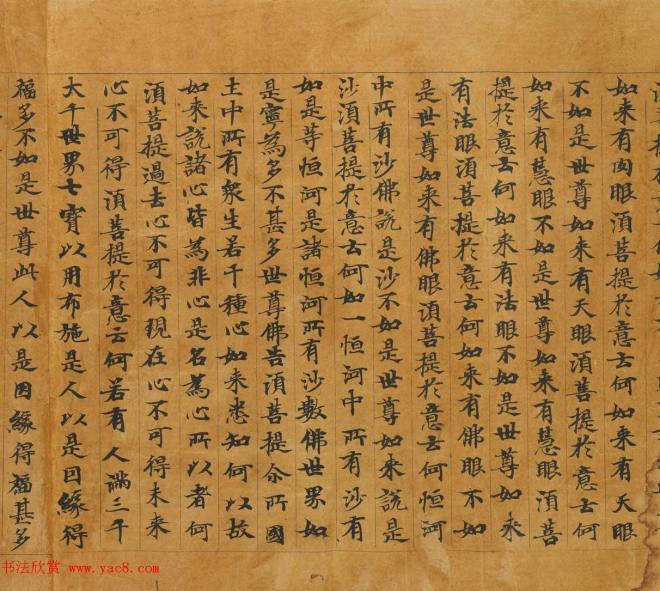 如来有肉眼須菩提於意云何如来有天眼
不如是世尊如来有天眼須菩提於意云何
如来有慧眼不如是世尊如来有慧眼須菩
提於意云何如来有法眼不如是世尊如来
有法眼須菩提於意云何如来有佛眼不如
是世尊如来有佛眼須菩提於意云何恒河
中所有沙佛説是沙不如是世尊如来説是
沙須菩提於意云何如一恒河中所有沙有
如是等恒河是諸恒河所有沙數佛世界如
是寧為多不甚多世尊佛告須菩提尒所國
土中所有衆生若干種心如来悉知何以故
如来説諸心皆為非心是名為心所以者何
須菩提過去心不可得現在心不可得未来
心不可得須菩提於意云何若有人滿三千
大千世界七寶以用布施是人以是因緣得
福多不如是世尊此人以是因緣得福甚多
书法欣赏 www.yac8.com